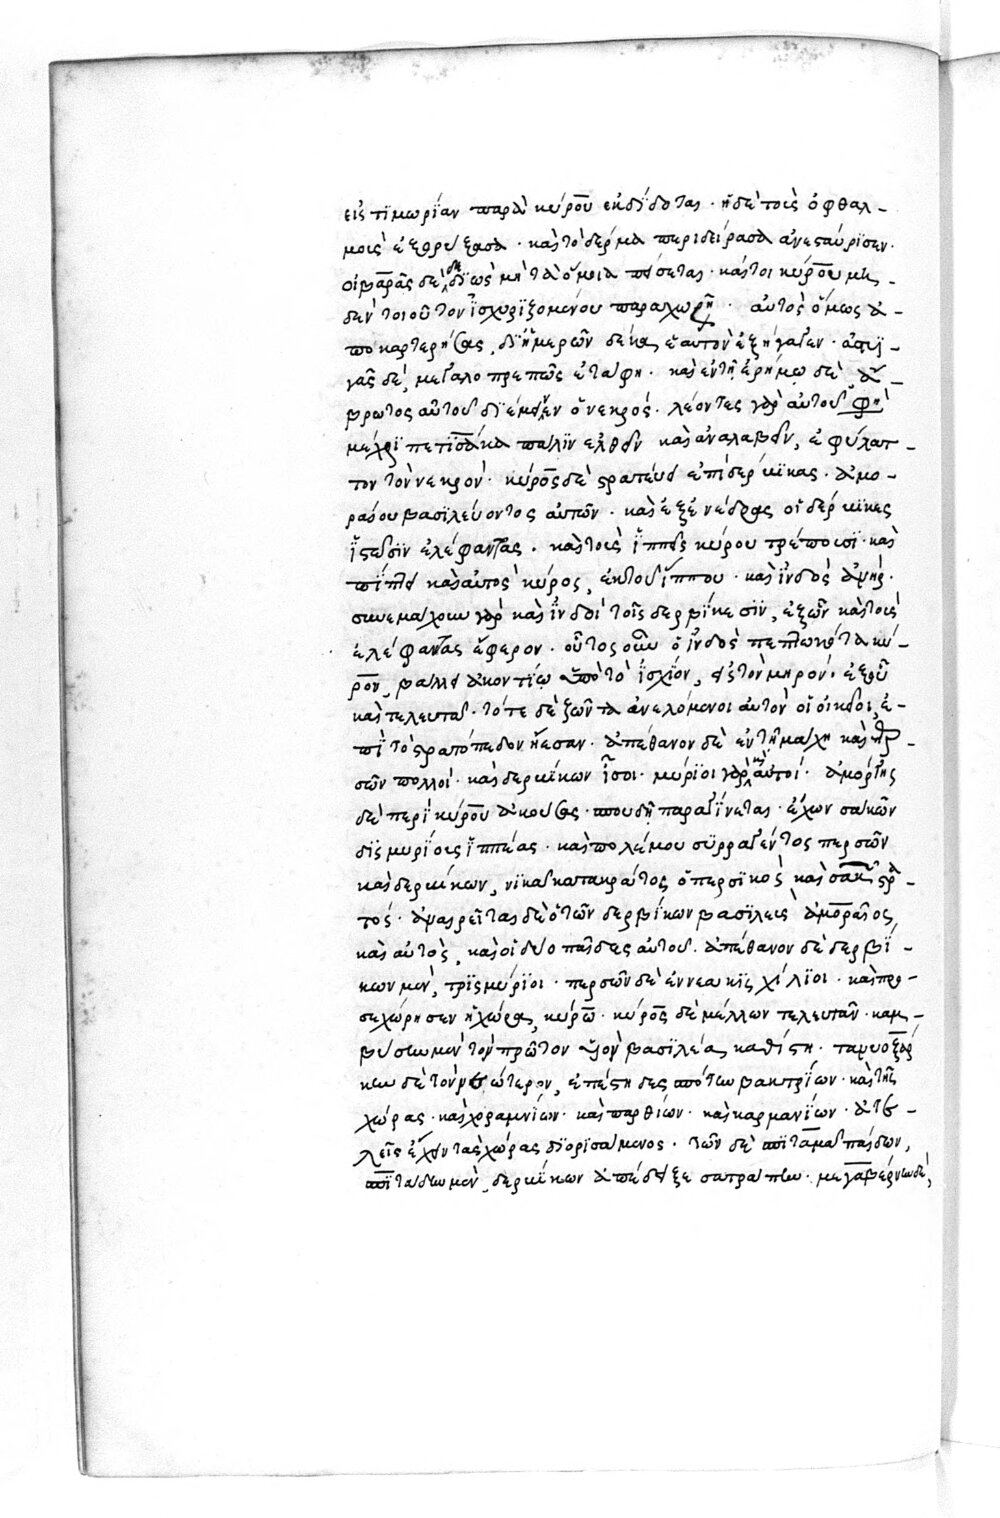 εἰς τϊμωρίαν παρὰ κύρου ἐκδίδοται· ἡ δὲ τοὺς ὀφθαλ-
μοὺς ἐξορύξασα· καὶ τὸ δέρμα περιδείρασα ἀνεσταύρισεν·
οἰβάρας δὲ δεδϊὼς μὴ τὰ ὅμοια πείσεται· καίτοι κύρου μη-
δὲν τοιοῦτον ἰσχυριζομένου παραχωρῆ· αὐτὸς ὅμως ἀ-
ποκαρτερήσας, δι' ἡμερῶν δέκα, ἑαυτὸν ἐξήγαγεν· ἀστι-
γᾶς δὲ, μεγαλοπρεπῶς ἐτάφη· καὶ ἐν τῇ ἐρήμω δὲ ἄ-
βρωτος αὐτοῦ διέμεινεν ὁ νεκρός· λέοντες γὰρ αὐτοῦ φησὶ
μέχρι πετισάκα πάλϊν ἐλθεῖν καὶ ἀναλαβεῖν, ἐφύλατ-
τον τὸν νεκρόν· κῦρος δὲ στρατεύει ἐπὶ δερβϊκας· ἀμο-
ραίου βασιλεύοντος αὐτῶν· καὶ ἐξ ἐνέδρας οἱ δέρβϊκες
ἱστᾶσϊν ἐλέφαντας· καὶ τοὺς ἱππεῖς κύρου τρέπουσϊ· καὶ
πίπτει καὶ αὐτὸς κῦρος, ἐκ τοῦ ἵππου· καὶ ἰνδὸς ἀνὴρ·
συνεμάχουν γὰρ καὶ ἰνδοὶ τοῖς δερβίκεσϊν, ἐξ ὧν καὶ τοὺς
ἐλέφαντας ἔφερον· οὗτος οὖν ὁ ἰνδὸς πεπτωκότα κύ-
ρον, βάλλει ἀκοντίω ὑπὸ τὸ ἰσχίον, εἰς τὸν μηρόν· ἐξ οὗ
καὶ τελευτᾶ· τότε δὲ ζῶντα ἀνελόμενοι αὐτὸν οἱ οἰκεῖοι, ἐ-
πὶ τὸ στρατόπεδον ἤεσαν· ἀπέθανον δὲ ἐν τῇ μάχη καὶ περ-
σῶν πολλοί· καὶ δερβίκων ἴσοι· μύριοι γὰρ καὶ αὐτοί· ἀμόργης
δὲ περὶ κύρου ἀκούσας· σπουδῆ παραγίνεται· ἔχων σακῶν
δϊσμυρίους ἱππέας· καὶ πολέμου συρραγέντος περσῶν
καὶ δερβίκων, νϊκᾶ κατακράτος ὁ περσϊκὸς καὶ σακῶν στρα-
τός· ἀναιρεῖται δὲ ὁ τῶν δερβίκων βασϊλεὺς ἀμοραῖος,
καὶ αὐτὸς, καὶ οἱ δύο παῖδες αὐτοῦ. ἀπέθανον δὲ δερβϊ-
κων μὲν, τρϊσμύριοι· περσῶν δὲ ἐννεακϊσχίλϊοι· καὶ προ-
σεχώρησεν ἡ χώρα, κύρω· κῦρος δὲ μέλλων τελευτᾶν· καμ-
βύσην μὲν τὸν πρῶτον υἱὸν βασϊλέα καθίστη· τανυοξάρ-
κην δὲ τὸν νεώτερον, ἐπέστησε δεσπότην βακτρίων· καὶ τῆς
χώρας· καὶ χοραμνίων· καὶ παρθίων· καὶ καρμανίων· ἀτε-
λεῖς ἔχειν τὰς χώρας διορισάμενος· τῶν δὲ σπιτάμα παίδων,
σπιτάδην μὲν, δερβίκων ἀπέδειξε σατράπην· μεγαβέρνην δὲ,